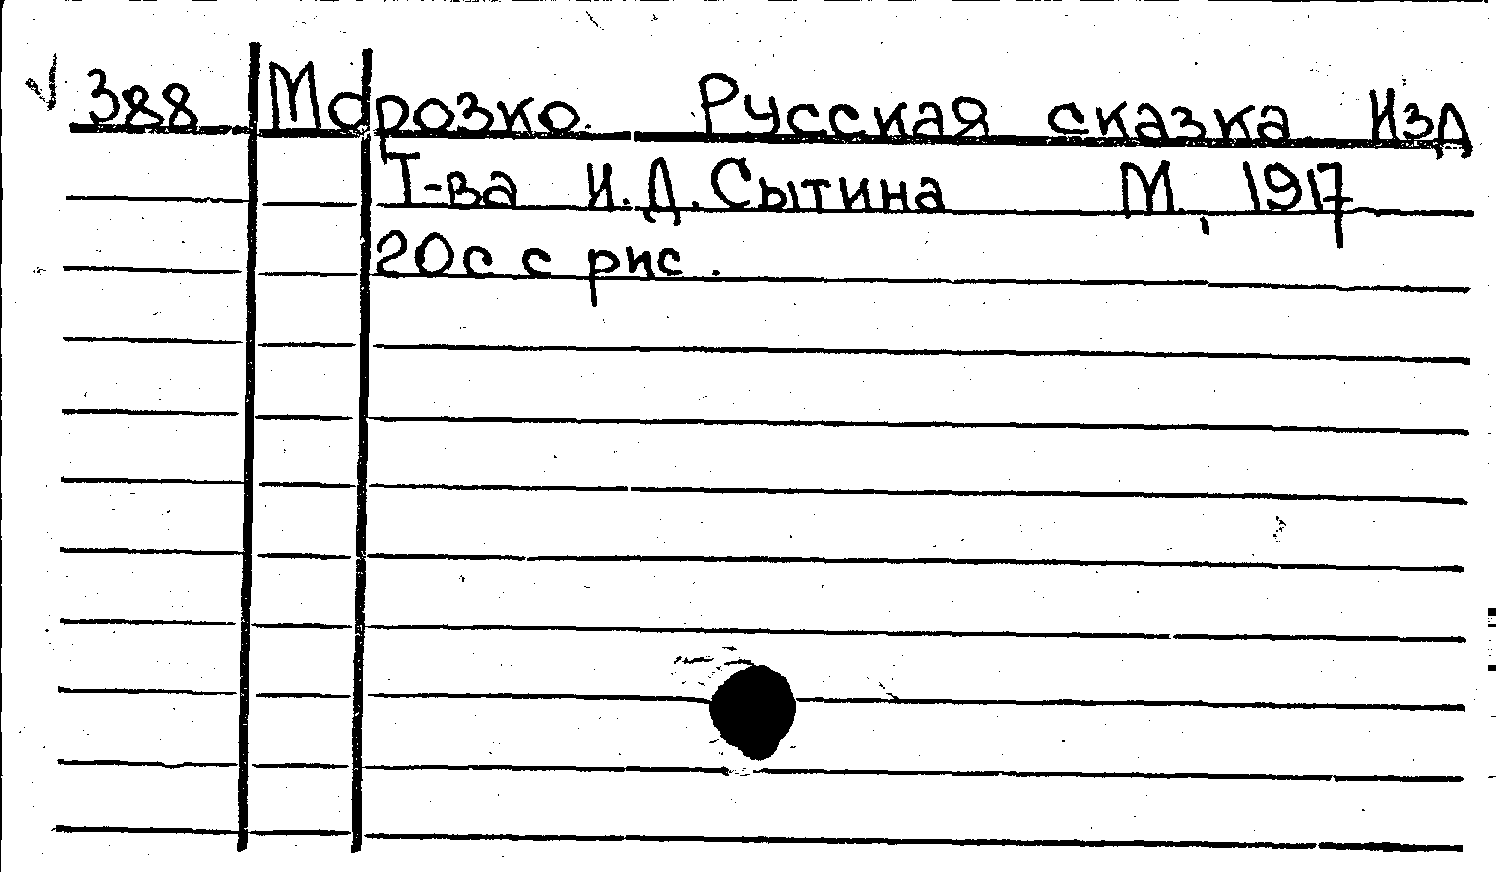 388 Морозко. Русская сказка Изд
Т-ва И.Д. Сытина М, 1917
20с с рис.